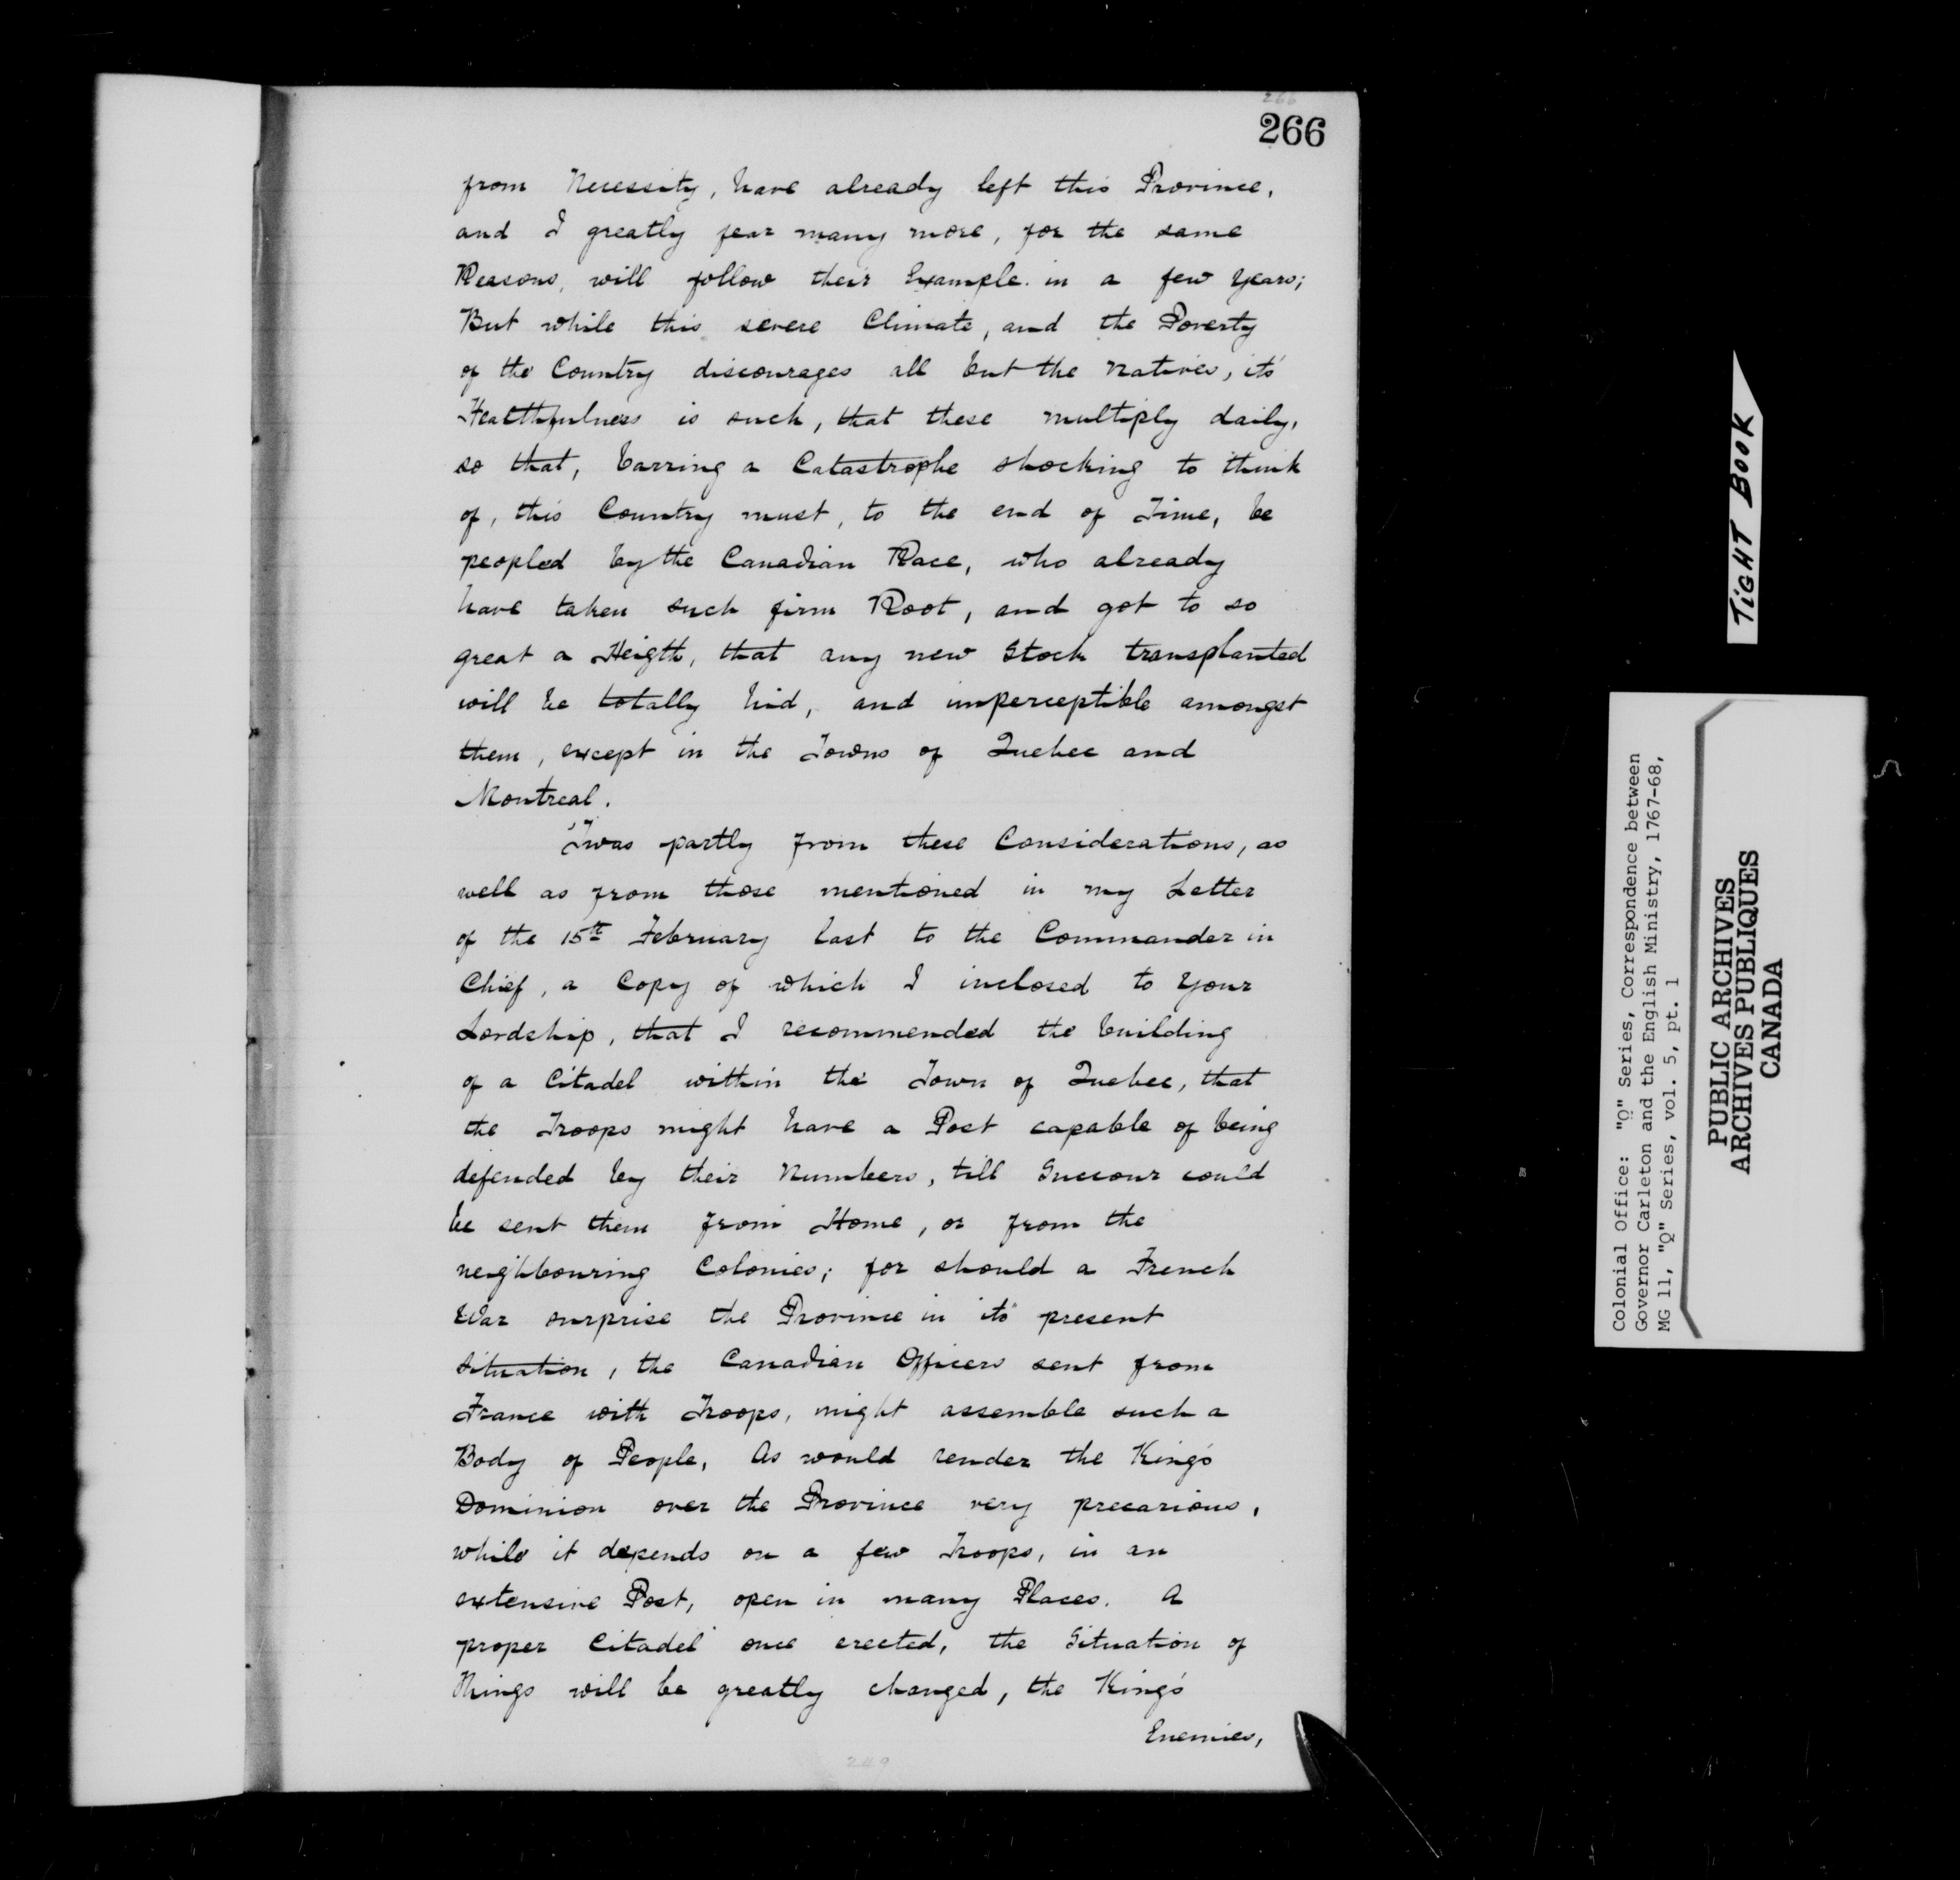 266
266
from Necessity, have already left this Province,
and I greatly fear many more, for the same
Reasons, will follow their Example in a few years;
But while this severe Climate, and the Poverty
of the Country discourages all but the natives, it's
Healthfulness is such, that these multiply daily,
so that, barring a Catastrophe shocking to think
of, this Country must, to the end of Time, be
peopled by the Canadian Race, who already
have taken such firm Root, and got to so
great a Heigth, that any new Stock transplanted
will be totally hid, and imperceptible amongst
them, except in the Towns of Quebec and
Montreal.
'Twas partly from these Considerations, as
well as from those mentioned in my Letter
of the 15th February last to the Commander in
Chief, a Copy of which I inclosed to Your
Lordship, that I recommended the building
of a Citadel within the Town of Quebec, that
the Troops might have a Post capable of being
defended by their Numbers, till Succour could
be sent them from Home, or from the
neighbouring Colonies; for should a French
War surprise the Province in it's present
Situation, the Canadian Officers sent from
France with Troops, might assemble such a
Body of People, As would render the King's
Dominion over the Province very precarious,
while it depends on a few Troops, in an
extensive Post, open in many Places. A
proper Citadel once erected, the Situation of
Things will be greatly changed, the King's
Enemies,
249
TIGHT BOOK
Colonial Office: "Q" Series, Correspondence between
Governor Carleton and the English Ministry, 1767-68,
MG 11, "Q" Series, vol. 5, pt. 1
PUBLIC ARCHIVES
ARCHIVES PUBLIQUES
CANADA